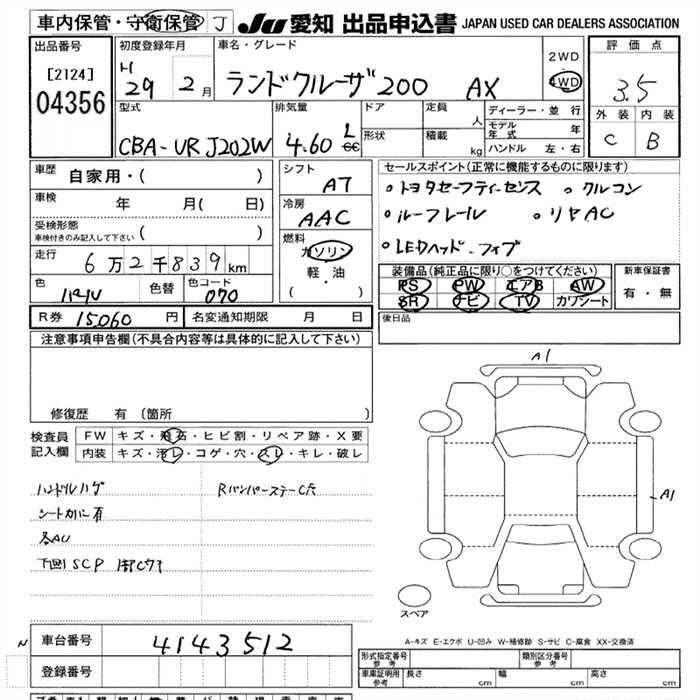 車内保管・守衛保管 J JU 愛知 出品申込書 JAPAN USED CAR DEALERS ASSOCIATION
出品番号
[2124]
04356
初度登録年月
H 29 2月
車名・グレード
ランドクルーザ200 AX
2WD
4WD
評価点
3.5
外装 内装
C B
型式
CBA-URJ202W
排気量
4.60 L cc
ドア
形状
定員 人
積載 kg
ディーラー・並行
モデル年式 年
ハンドル 左・右
車歴 自家用・( )
車検 年 月( 日)
受検形態
車検付きのみ記入して下さい ( )
走行 6万2千839km
色 パール 色替 色コード 070
シフト
AT
冷房
AAC
燃料
ガソリン
軽・油
( )
セールスポイント(正常に機能するものに限ります)
・トヨタセーフティーセンス ・クルコン
・ルーフレール ・リヤAC
・LEDヘッド・フォグ
装備品(純正品に限り○をつけてください)
PS PW エアB AW
SR ナビ TV カワシート
新車保証書
有・無
R券 15,060円 名変通知期限 月 日
後日品
注意事項申告欄(不具合内容等は具体的に記入して下さい)
修復歴 有 (箇所 )
検査員
記入欄
FW キズ・飛石・ヒビ割・リペア跡・X要
内装 キズ・汚レ・コゲ・穴・スレ・キレ・破レ
ハンドルハゲ
シートカバー有
各AU
下回りSCP
RバンパーステーC大
A1
A1
スペア
A-キズ E-エクボ U-凹み W-補修跡 S-サビ C-腐食 XX-交換済
N
車台番号 4143512
登録番号
形式指定番号
参考
類別区分番号
参考
車庫証明用
参考
長さ cm 幅 cm 高さ cm